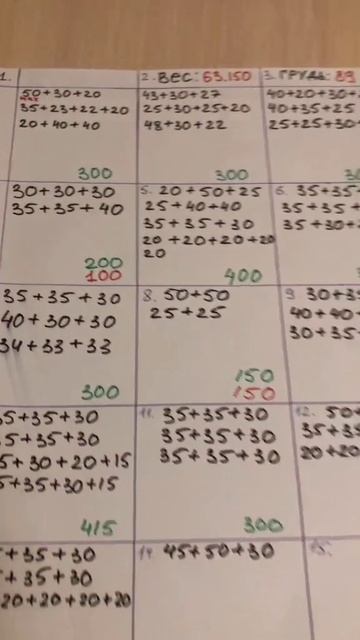 1.
50+30+20
MAX
35+23+22+20
20+40+40
300
2. ВЕС: 63.150
43+30+27
25+30+25+20
48+30+22
300
3. ГРУДЬ: 89
40+20+30+
40+35+25
25+25+30+
30+30+30
35+35+40
200
100
5. 20+50+25
25+40+40
35+35+30
20+20+20+20
20
400
6. 35+35
35+35+
35+30+
35+35+30
40+30+30
34+33+33
300
8. 50+50
25+25
150
150
9. 30+3
40+40+
30+35
5+35+30
5+35+30
5+30+20+15
5+35+30+15
415
11. 35+35+30
35+35+30
35+35+30
300
12. 50+
35+35
20+20
+35+30
+35+30
20+20+20+20
14. 45+50+30
15.